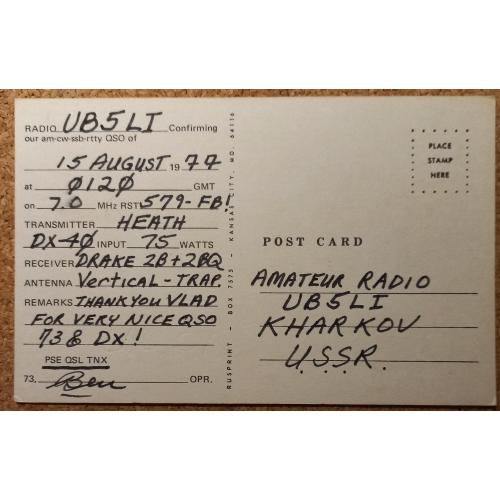 RADIO UB5LI Confirming
our am-cw-ssb-rtty QSO of
15 AUGUST 1977
at Ø12Ø GMT
on 7.0 MHz RST 579-FB!
TRANSMITTER HEATH
DX-4Ø INPUT 75 WATTS
RECEIVER DRAKE 2B+2BQ
ANTENNA Vertical-TRAP.
REMARKS THANK YOU VLAD
FOR VERY NICE QSO
73 & DX!
PSE QSL TNX
73, Ben OPR.
RUSPRINT - BOX 7575 - KANSAS CITY, MO. 64116
PLACE
STAMP
HERE
POST CARD
AMATEUR RADIO
UB5LI
KHARKOV
U.S.S.R.